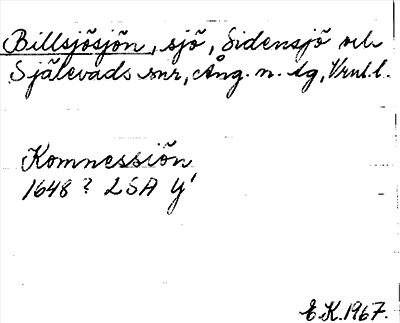 Billsjösjön, sjö, Sidensjö och
Själevads snr, Ång. n. tg, Vnl.l.
Komnessiön
1648? LSA Y¹
E.K. 1967.